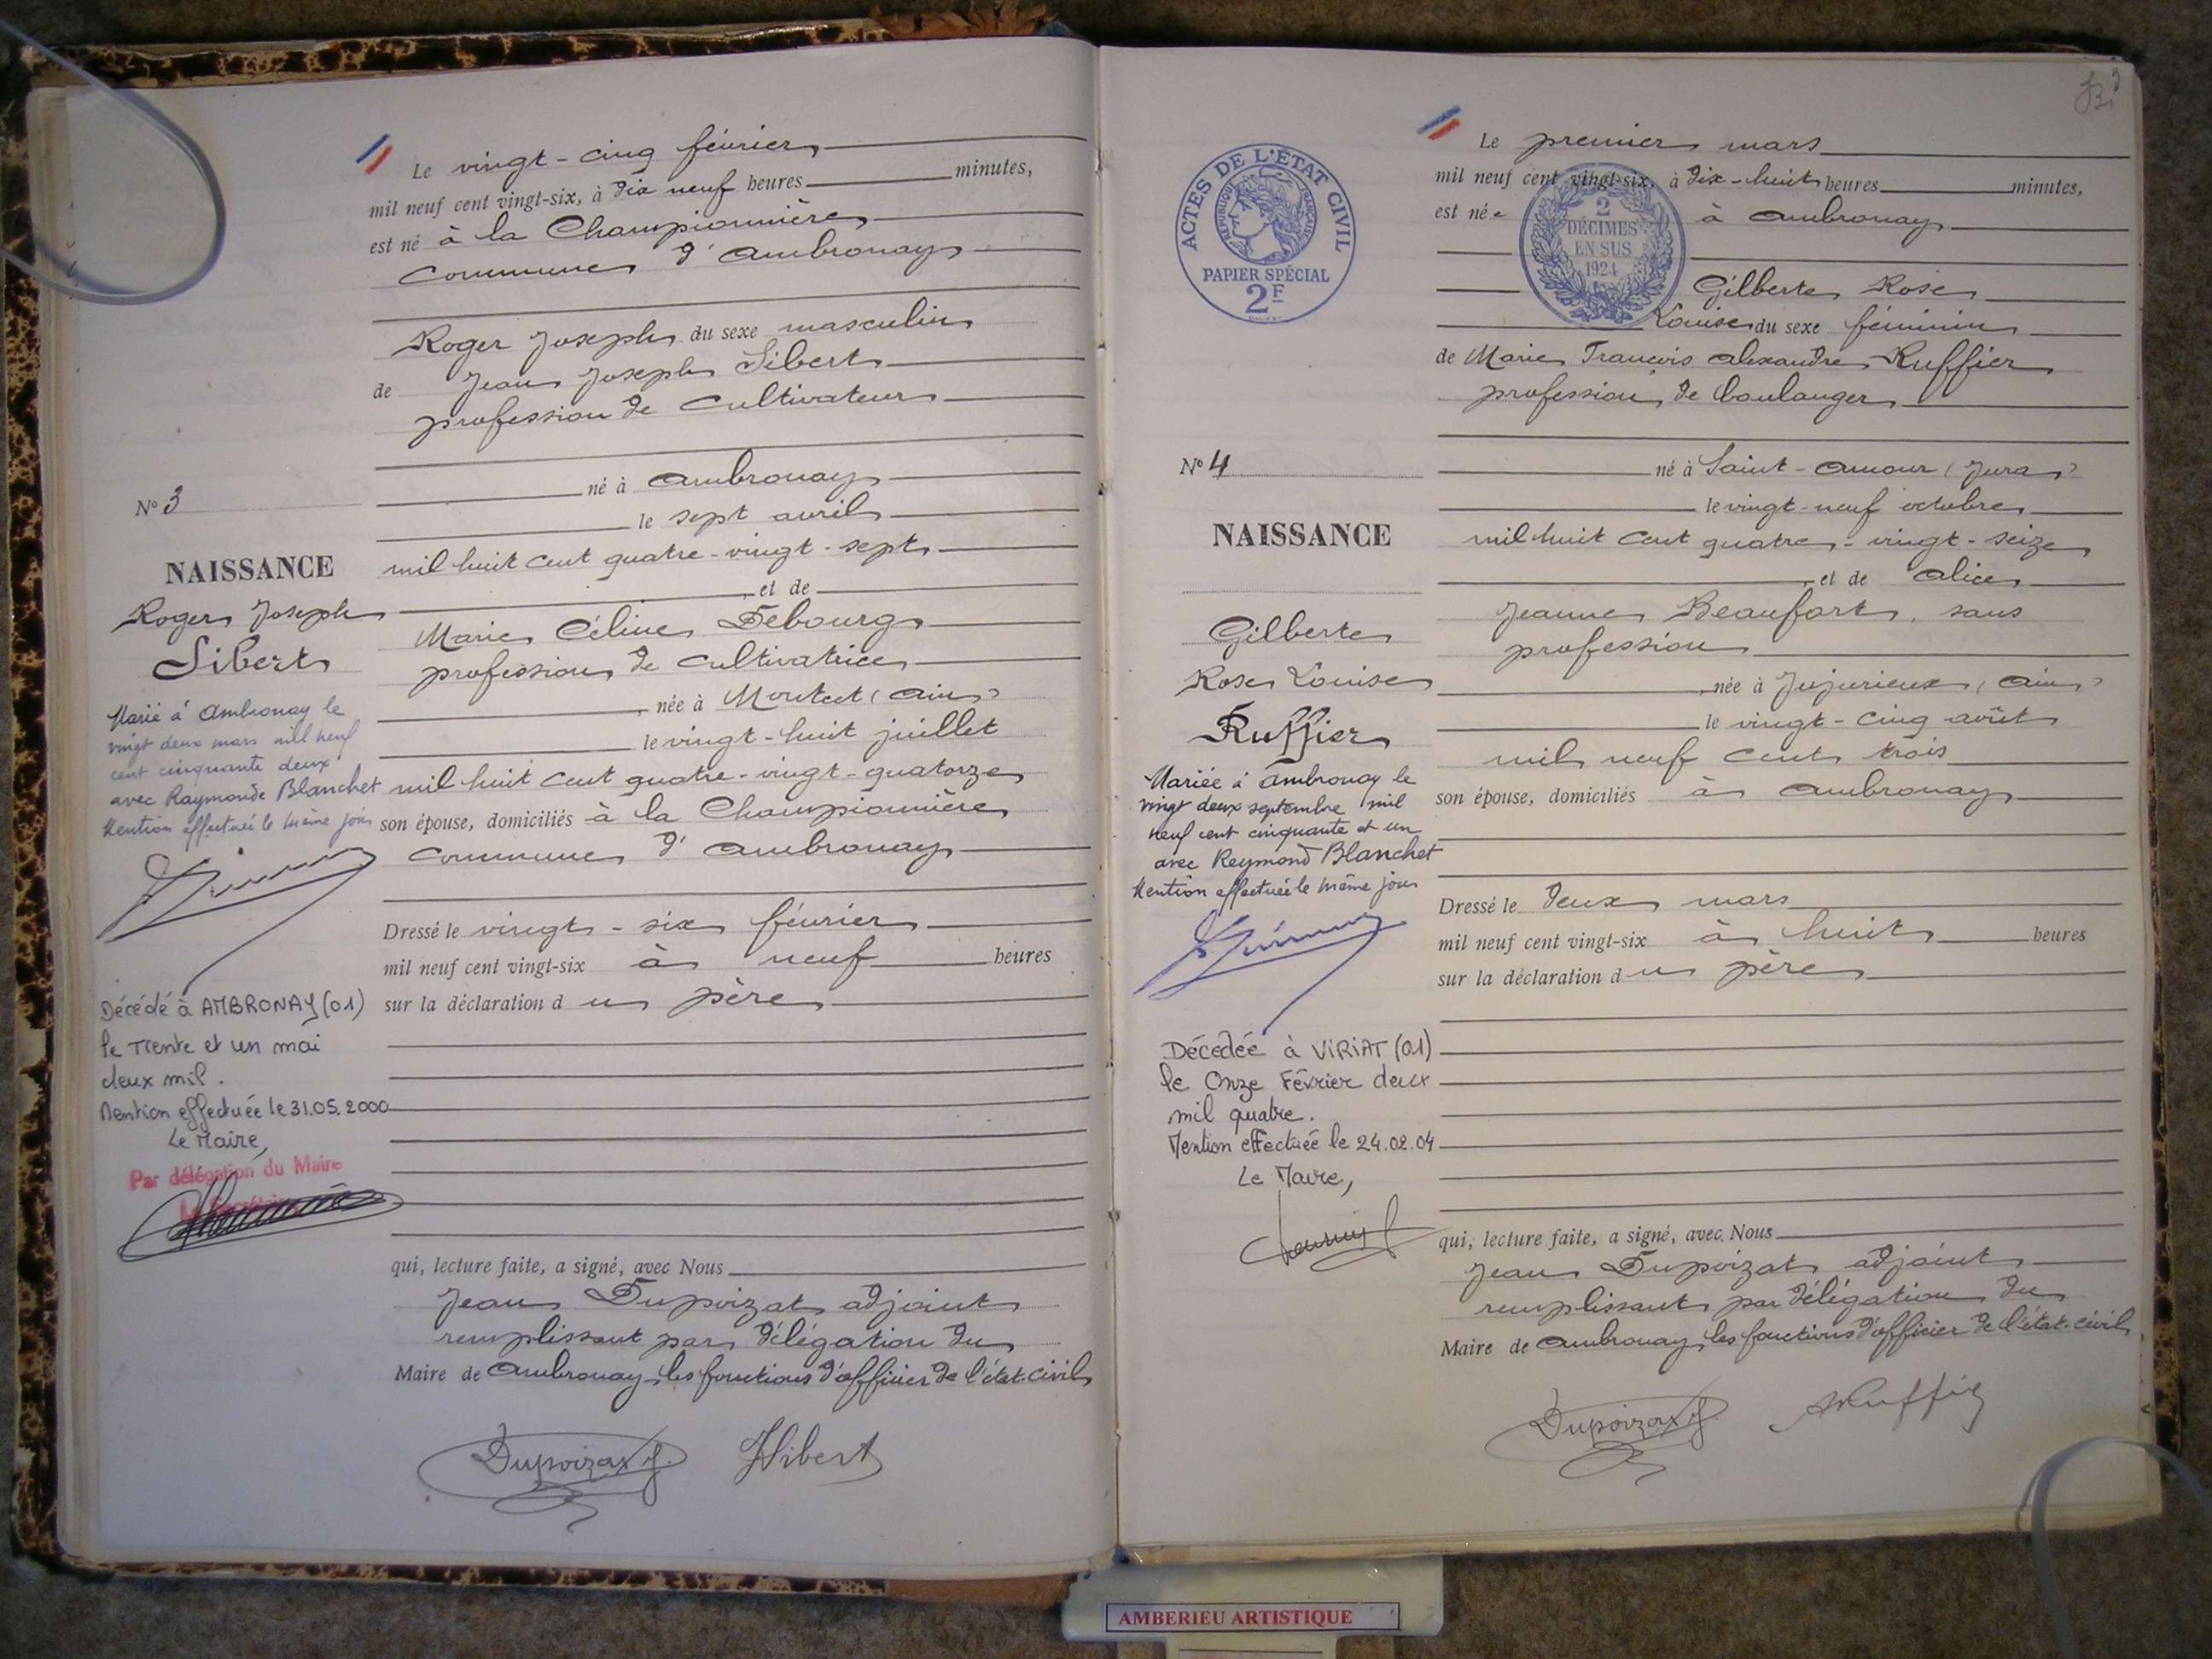 Le vingt-cinq février
mil neuf cent vingt-six, à dix neuf heures minutes,
est né à la Championnière
commune d'Ambronay
Roger Joseph du sexe masculin
de Jean Joseph Sibert
profession de cultivateur
né à Ambronay
le sept avril
mil huit cent quatre-vingt-sept
et de
Marie Céline Debourg
profession de cultivatrice
, née à Montcet (Ain)
le vingt-huit juillet
mil huit cent quatre-vingt-quatorze
son épouse, domiciliés à la Championnière
commune d'Ambronay
Dressé le vingt-six février
mil neuf cent vingt-six à neuf heures
sur la déclaration du père
qui, lecture faite, a signé, avec Nous
Jean Dupoizat adjoint
remplissant par délégation du
Maire de Ambronay les fonctions d'officier de l'état-civil
Dupoizat J. JSibert
N° 3
NAISSANCE
Roger Joseph
Sibert
Marié à Ambronay le
vingt deux mars mil neuf
cent cinquante deux
avec Raymonde Blanchet
Mention effectuée le même jour
Décédé à AMBRONAY (01)
le Trente et un mai
deux mil.
Mention effectuée le 31.05.2000
Le Maire,
Par délégation du Maire
Le premier mars
mil neuf cent vingt-six, à dix-huit heures minutes,
est née à Ambronay
Gilberte Rose
Louise du sexe féminin
de Marie François Alexandre Ruffier
profession de boulanger
né à Saint-Amour (Jura)
le vingt-neuf octobre
mil huit cent quatre-vingt-seize
, et de Alice
Jeanne Beaufort, sans
profession
, née à Jujurieux (Ain)
le vingt-cinq août
mil neuf cent trois
son épouse, domiciliés à Ambronay
Dressé le deux mars
mil neuf cent vingt-six à huit heures
sur la déclaration du père
qui, lecture faite, a signé, avec Nous
Jean Dupoizat adjoint
remplissant par délégation du
Maire de Ambronay les fonctions d'officier de l'état-civil
Dupoizat J. ARuffier
ACTES DE L'ÉTAT CIVIL
RÉPUBLIQUE FRANÇAISE
PAPIER SPÉCIAL
2F
2
DÉCIMES
EN SUS
1924
N° 4
NAISSANCE
Gilberte
Rose Louise
Ruffier
Mariée à Ambronay le
vingt deux septembre mil
neuf cent cinquante et un
avec Reymond Blanchet
Mention effectuée le même jour
Décédée à VIRIAT (01)
le Onze Février deux
mil quatre.
Mention effectuée le 24.02.04
Le Maire,
AMBERIEU ARTISTIQUE